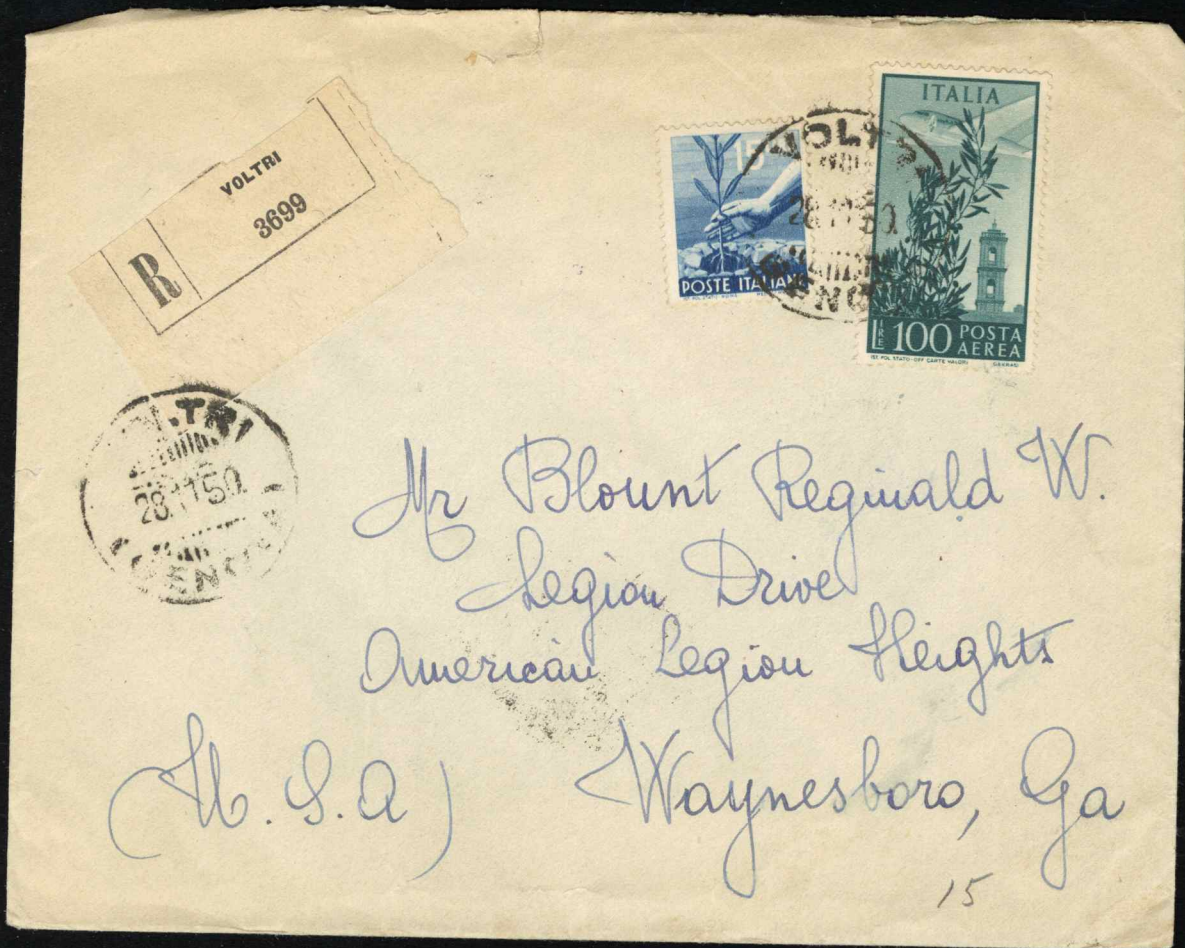 VOLTRI
R 3699
15
POSTE ITALIANE
ITALIA
LIRE 100 POSTA AEREA
IST. POL. STATO-OFF. CARTE VALORI
VOLTRI
GENOVA
28. 50.
TRI
28.11 50.
(GENOVA)
Mr Blount Reginald W.
Legion Drive
American Legion Heights
(U.S.A) Waynesboro, Ga
15